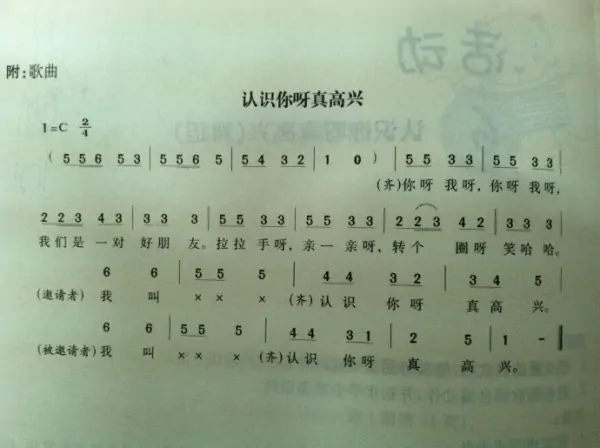 附:歌曲
认识你呀真高兴
1=C 2/4
( 5 5 6 5 3 | 5 5 6 5 | 5 4 3 2 | 1 0 ) | 5 5 3 3 | 5 5 3 3 |
(齐)你呀 我呀, 你呀 我呀,
2 2 3 4 3 | 3 3 3 | 5 5 5 3 | 5 5 3 3 | 2 2 3 4 2 | 3 3 3 |
我们是 一对 好朋 友。拉拉 手呀, 亲一 亲呀, 转个 圈呀 笑哈哈。
6 6 | 5 5 5 | 4 4 3 2 | 3 4 5 |
(邀请者) 我 叫 × × × (齐)认识 你呀 真高 兴。
6 6 | 5 5 5 | 4 4 3 1 | 2 5 | 1 - ‖
(被邀请者)我 叫 × × × (齐)认识 你呀 真 高 兴。